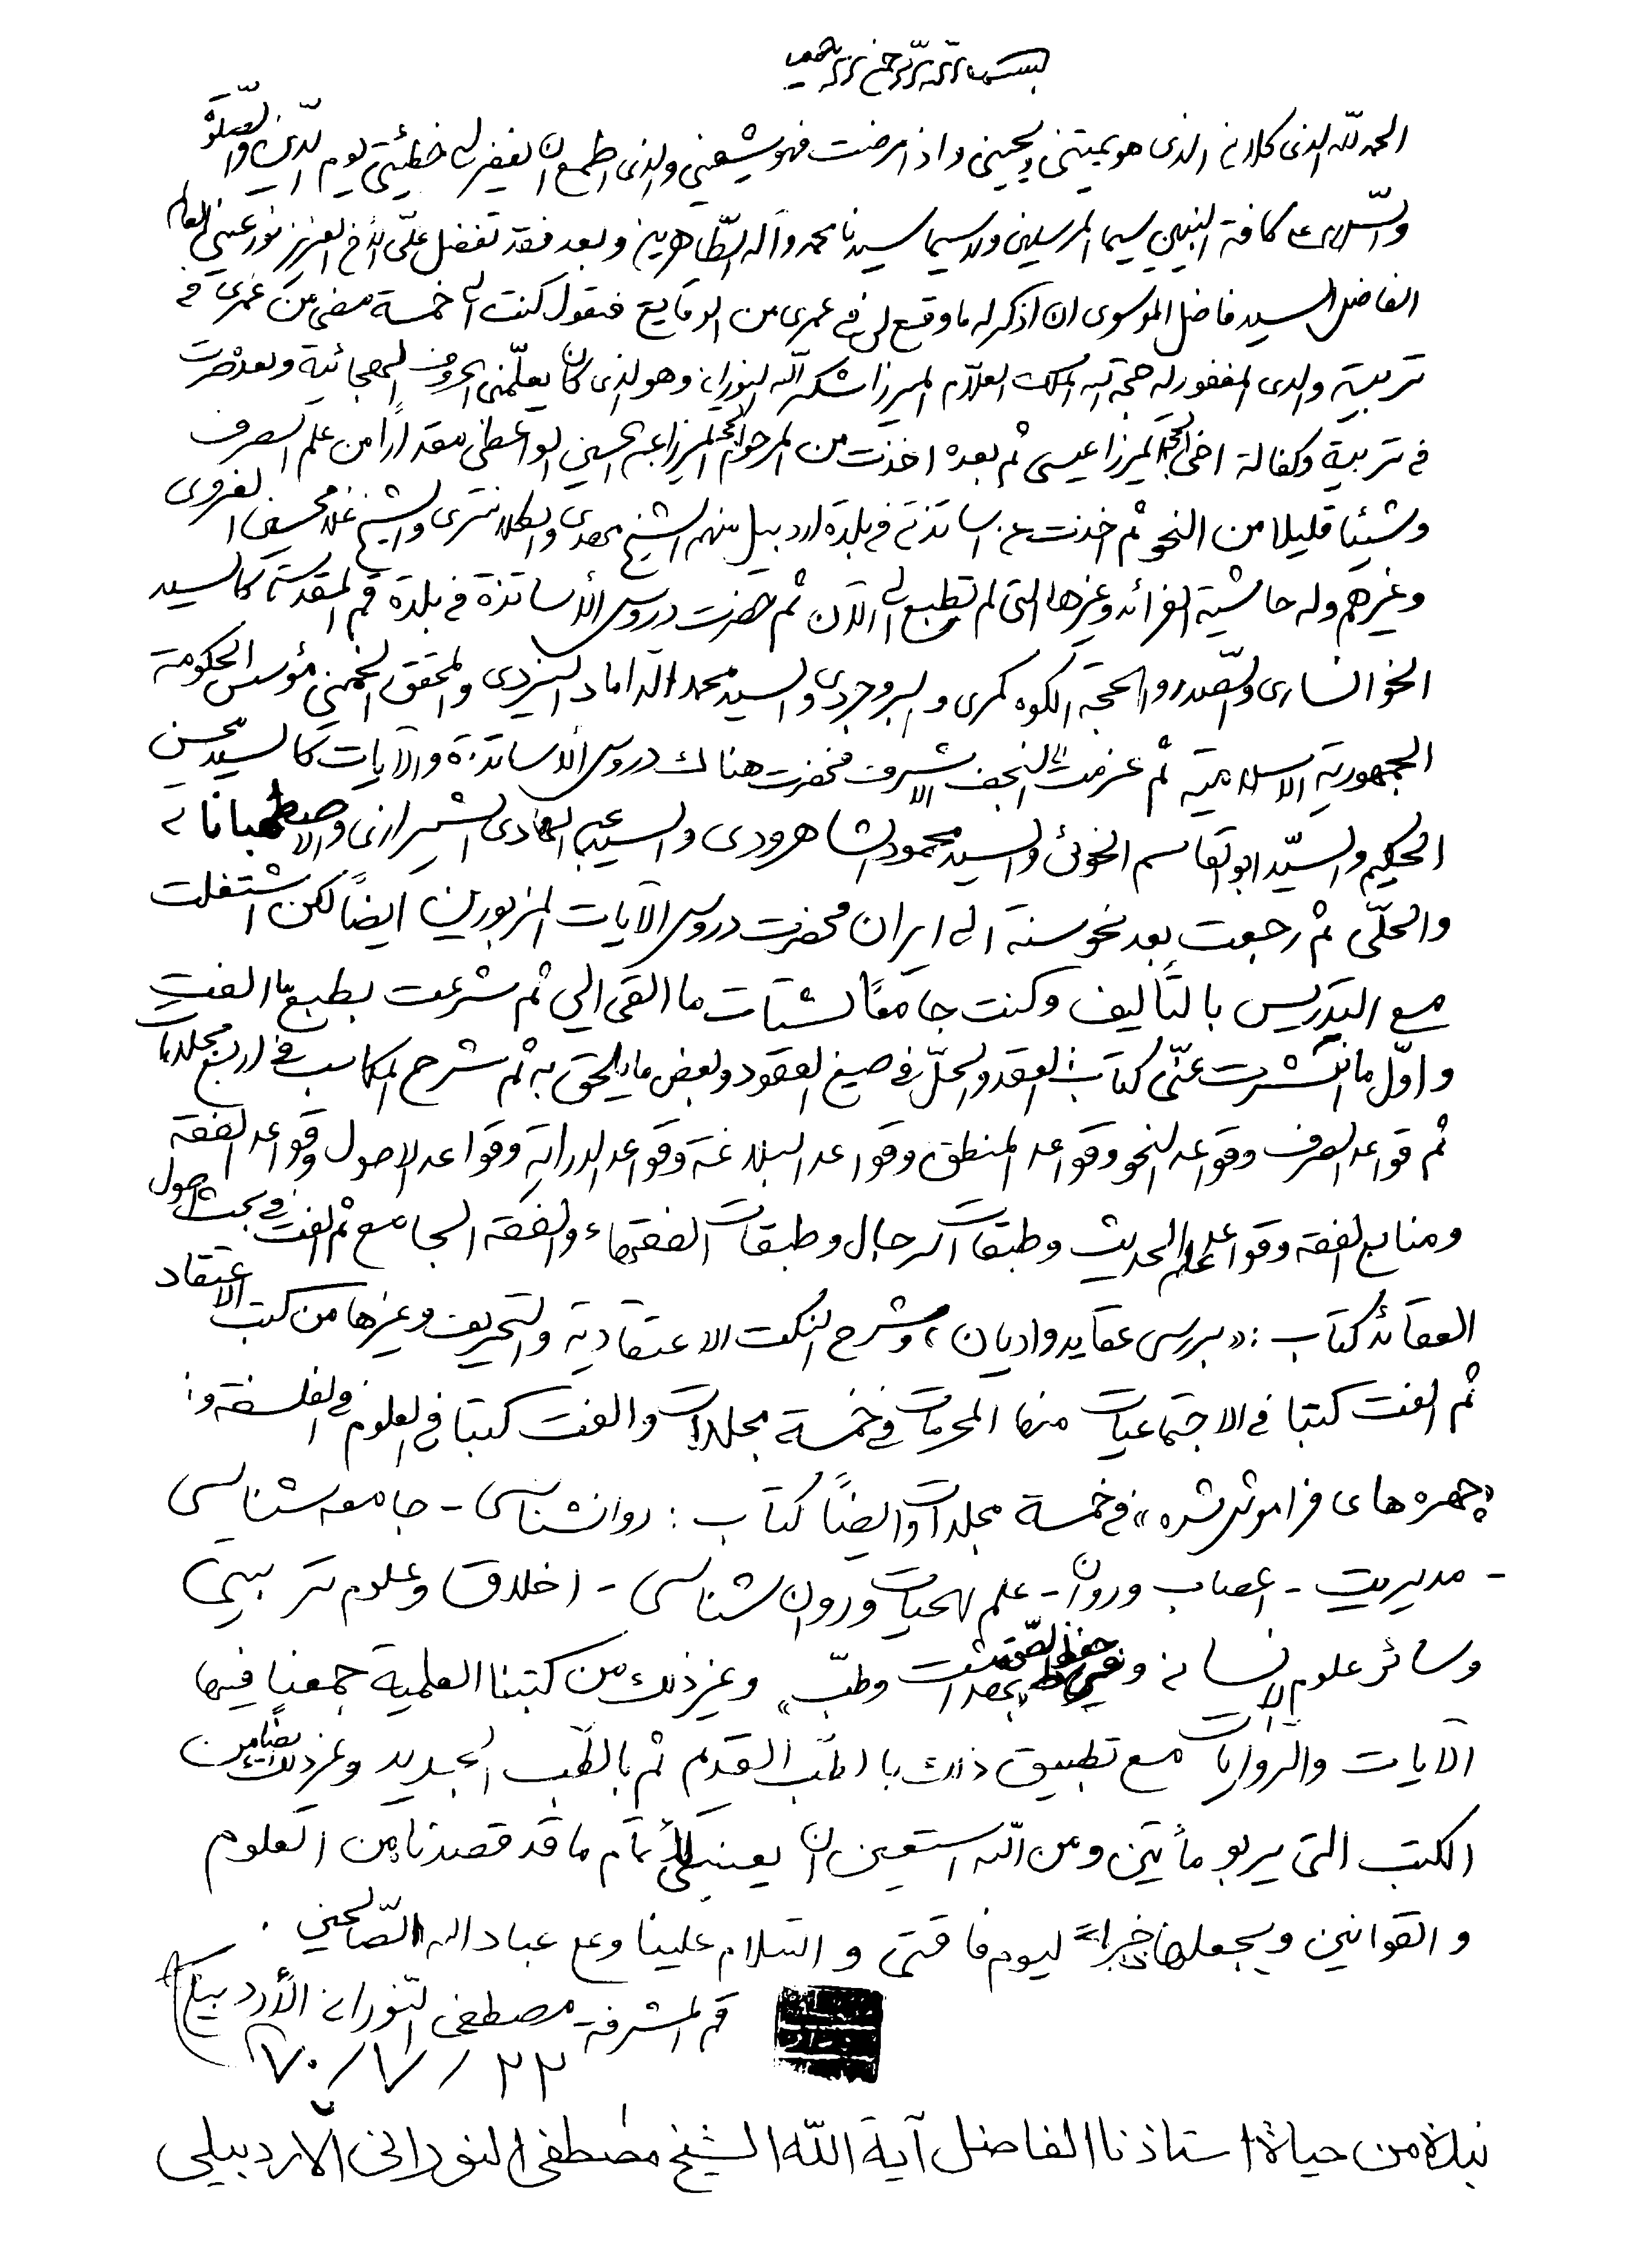 بسم الله الرحمن الرحيم
الحمد لله الذى كلانى الذى هو يميتنى ويحيينى واذا مرضت فهو يشفينى والذى اطمع ان يغفر لى خطيئتى يوم الدّين والصّلوة
والسّلام على كافة النبيين سيما المرسلين ولاسيما سيدنا محمد وآله الطّاهرين وبعد فقد تفضل علىّ الأخ العزيز نور عينى العالم
الفاضل السيد فاضل الموسوى ان اذكر له ما وقع لى فى عمرى من الوقايع فنقول كنت الى خمسة مضى من عمرى فى
تربية والدى المغفور له حجة الله الملك العلّام الميرزا شكر الله النورانى وهو الذى كان يعلّمنى الحروف الهجائية وبعد صرت
فى تربية وكفالة اخى الحجة الميرزا عيسى ثم بعده اخذت من المرحوم الحجة الميرزا عبد الحسين الواعظى مقداراً من علم الصرف
وشيئا قليلا من النحو ثم اخذت عن اساتذتى فى بلدة اردبيل منهم الشيخ مهدى والكلانترى والشيخ غلامحسين الغروى
وغيرهم وله حاشية الفرائد وغيرها التى لم تطبع الى الآن ثم حضرت دروس الأساتذة فى بلدة قم المقدسة كالسيد
الخوانسارى والصّدر والحجة الكوه كمرى والبروجردى والسيد محمد الداماد اليزدى والمحقق الخمينى مؤسس الحكومة
الجمهورية الاسلامية ثم عزمت الى النجف الاشرف فحضرت هناك دروس الاساتذة والآيات كالسيد محسن
الحكيم والسيّد ابو القاسم الخوئى والسيد محمود الشاهرودى والسيد عبد الهادى الشيرازى والاصطهباناتى
والحلّى ثم رجعت بعد نحو سنة الى ايران فحضرت دروس الآيات المزبورين ايضاً لكن اشتغلت
مع التدريس بالتأليف وكنت جامعًا لشتات ما القى الي ثم شرعت بطبع ما الفت
واوّل ما انتشرت عنّى كتاب العقد والحلّ فى صيغ العقود وبعض ما يلحق به ثم شرح المكاسب فى اربع مجلدات
ثم قواعد الصرف وقواعد النحو وقواعد المنطق وقواعد البلاغة وقواعد الدراية وقواعد الاصول وقواعد الفقه
ومنابع الفقه وقواعد علم الحديث وطبقات الرجال وطبقات الفقهاء والفقه الجامع ثم الفت فى بحث اصول
العقائد كتاب : «بررسى عقايد واديان» وشرح النكت الاعتقادية والتحريف وغيرها من كتب الاعتقاد
ثم الفت كتبا فى الاجتماعيات منها المحرمات فى خمسة مجلدات والفت كتبا فى العلوم فى الفلسفة و:
«چهره هاى فراموش شده» فى خمسة مجلدات وايضاً كتاب : روانشناسى - جامعه شناسى
- مديريت - اعصاب وروان - علم الحيات وروان شناسى - اخلاق وعلوم تربيتى
وسائر علوم الانسانى وفى حفظ الصّحة «بهداشت وطبّ» وغير ذلك من كتبنا العلمية جمعنا فيها
الآيات والرّوايات مع تطبيق ذلك بالطبّ القديم ثم بالطّب الجديد وغير ذلك من
الكتب التى يربو مأتين ومن الله استعين ان يعيننى لأتمام ما قد قصدنا من العلوم
والقوانين ويجعلها ذخيراً ليوم فاقتى والسّلام علينا وعلى عباد الله الصّالحين .
قم المشرفة مصطفى النّورانى الأردبيلى
٢٢ / ٧ / ٧٠
نبذة من حياة استاذنا الفاضل آية الله الشيخ مصطفى النورانى الاردبيلي